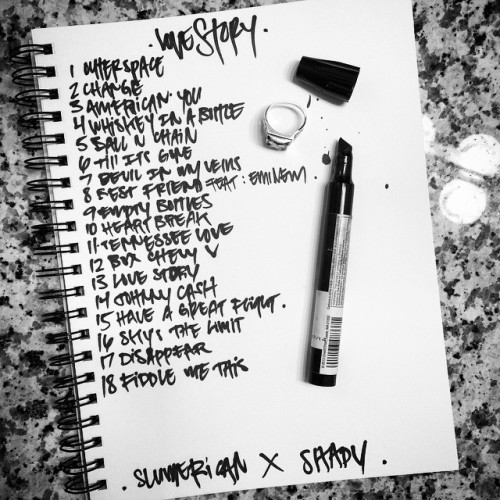 .LOVE STORY.
1 OUTERSPACE
2 CHANGE
3 AMERICAN YOU
4 WHISKEY IN A BOTTLE
5 BALL N CHAIN
6 Till ITS GONE
7 DEVIL IN MY VEINS
8 BEST FRIEND FEAT: EMINEM.
9 EMPTY BOTTLES
10 HEARTBREAK
11 TENNESSEE LOVE
12 BOX CHEVY V
13 LOVE STORY
14 JOHNNY CASH
15 HAVE A GREAT FLIGHT.
16 SKY'S THE LIMIT
17 DISAPPEAR
18 FIDDLE ME THIS
. SLUMERiCAN X SHADY .